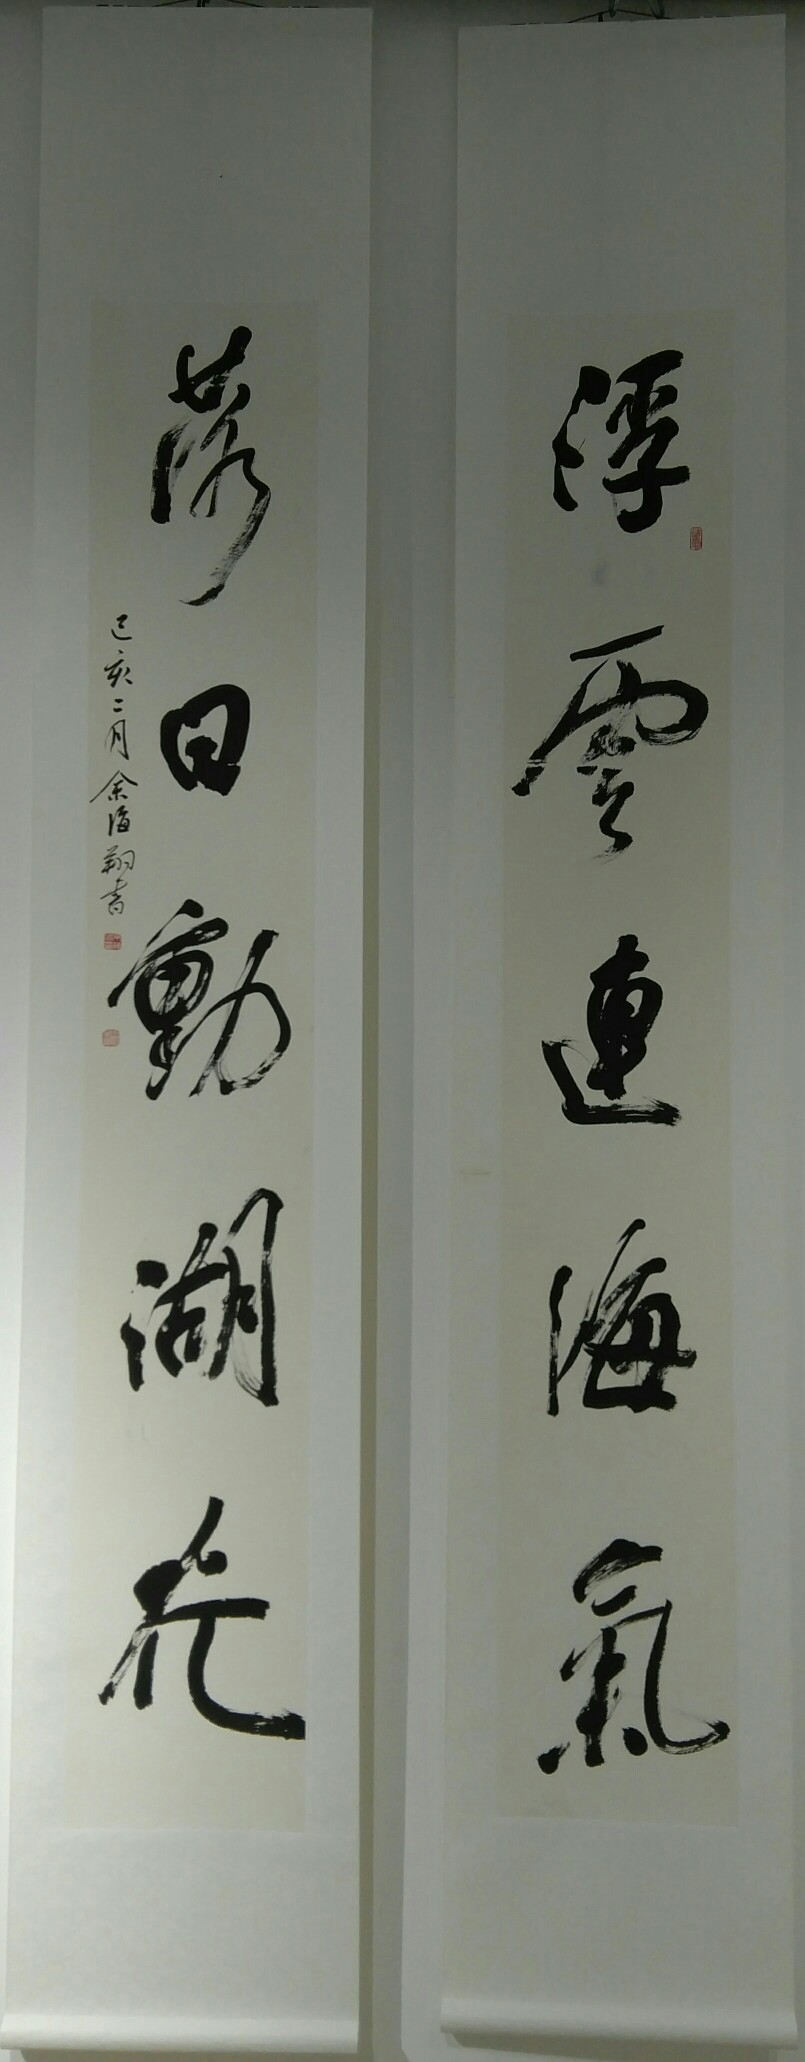 浮雲連海氣
落日動湖光
己亥二月余海翔書